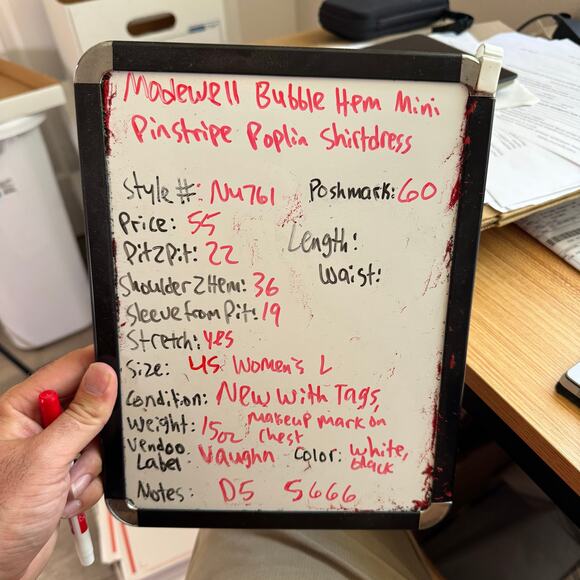 Madewell Bubble Hem Mini
Pinstripe Poplin Shirtdress
Style #: NU761 Poshmark: 60
Price: 55
Pit2Pit: 22 Length:
Waist:
Shoulder2Hem: 36
Sleeve from Pit: 19
Stretch: yes
Size: US Women's L
Condition: New With Tags,
makeup mark on
chest
Weight: 15oz
Vendoo Label: Vaughn Color: white, black
Notes: D5 5666